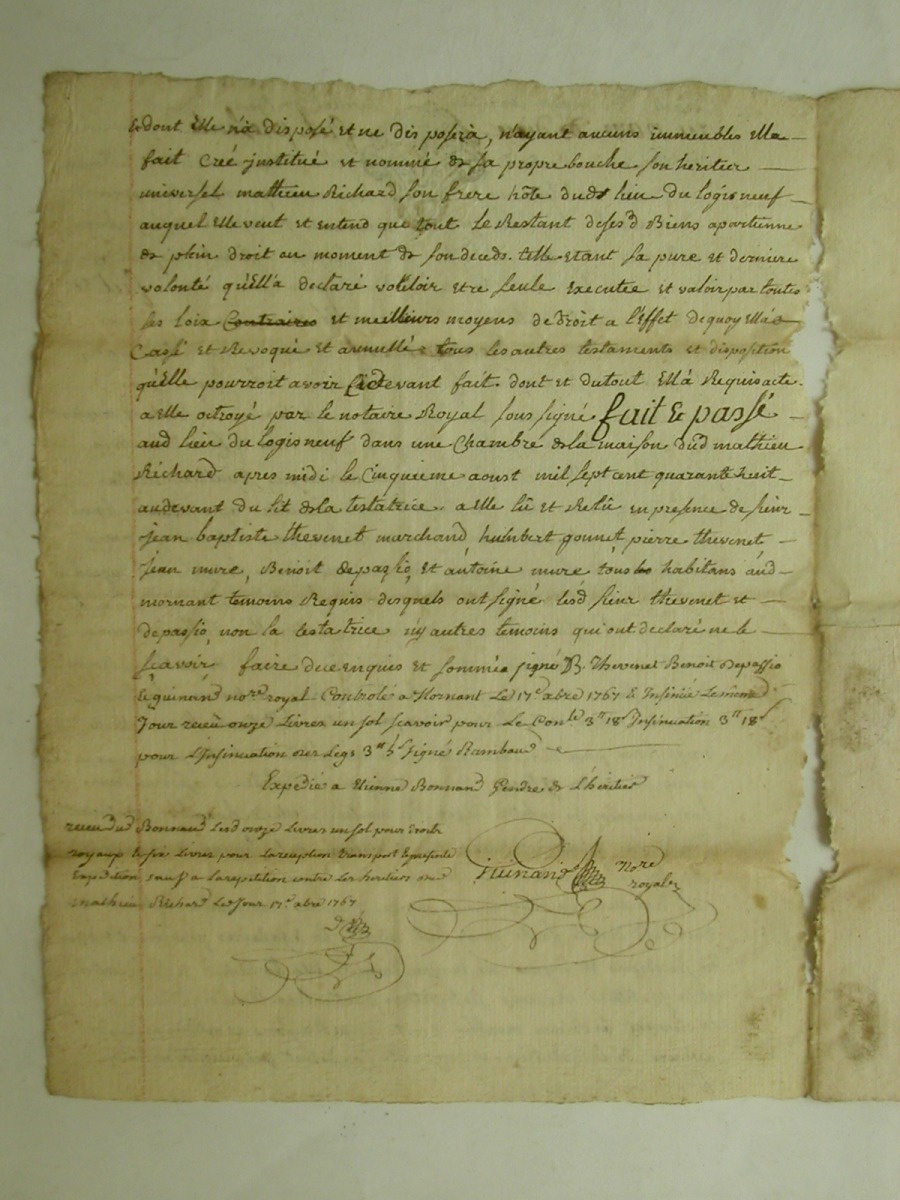 & dont Elle n'a disposé et ne disposera, n'ayant aucuns immeubles Ella
fait Créé justitué et nommé de sa propre bouche son heritier
universel mathieu Richard son frere hôte dud. lieu du logis neuf
auquel Elle veut et entend que tout Le Restant de sesd Biens apartienne
de plein droit au moment de son deceds. telle etant sa pure et derniere
volonté qu'Ell'a declaré voulloir etre seule Executée et valoir par toutes
les loix Contraires et meilleurs moyens de droit a l'Effet de quoy Ell'a
Cassé et Revoqué et annullé tous les autres testaments et disposition
qu'Elle pourroit avoir Cidevant fait. dont et dutout Ell'a Requis acte.
a elle octroyé par le notaire Royal soussigné fait & passé
aud lieu du logis neuf dans une Chambre de la maison dud mathieu
Richard apres midi le Cinquieme aoust mil sept cent quarante huit
audevant du lit de la testatrice, a elle lû et Relû en presence de sieur
jean baptiste thevenet marchand, humbert gonnet pierre thevenet
jean mure, Benoit depassio, et antoine mure, tous habitans aud
mornant temoins Requis desquels ont signé lesd sieur thevenet et
depassio, non la testatrice n'y autres temoins qui ont declaré ne le
sçavoir faire de ce enquis et sommés signé B. Thevenet Benoit depassio
& guinand no.re royal Controlé a Mornant Le 17.e abre 1767 & Insinué Le
Jour receu onze Livres un sol scavoir pour Le Con.le 3tt 18s Insinuation 3tt 18s
pour L'Insinuation des Legs 3tt 5s signé Rambaud
Expedié a Etienne Bonnand Gendre de L'heritier
receu dud Bonnand Lesd onze Livres un sol pour Droits
royaux & six Livres pour La reception transport & presente
Expedition sauf a La repetition contre Les heritiers dud
Mathieu Richard Led Jour 17.e abre 1767
Guinand No.re
royal